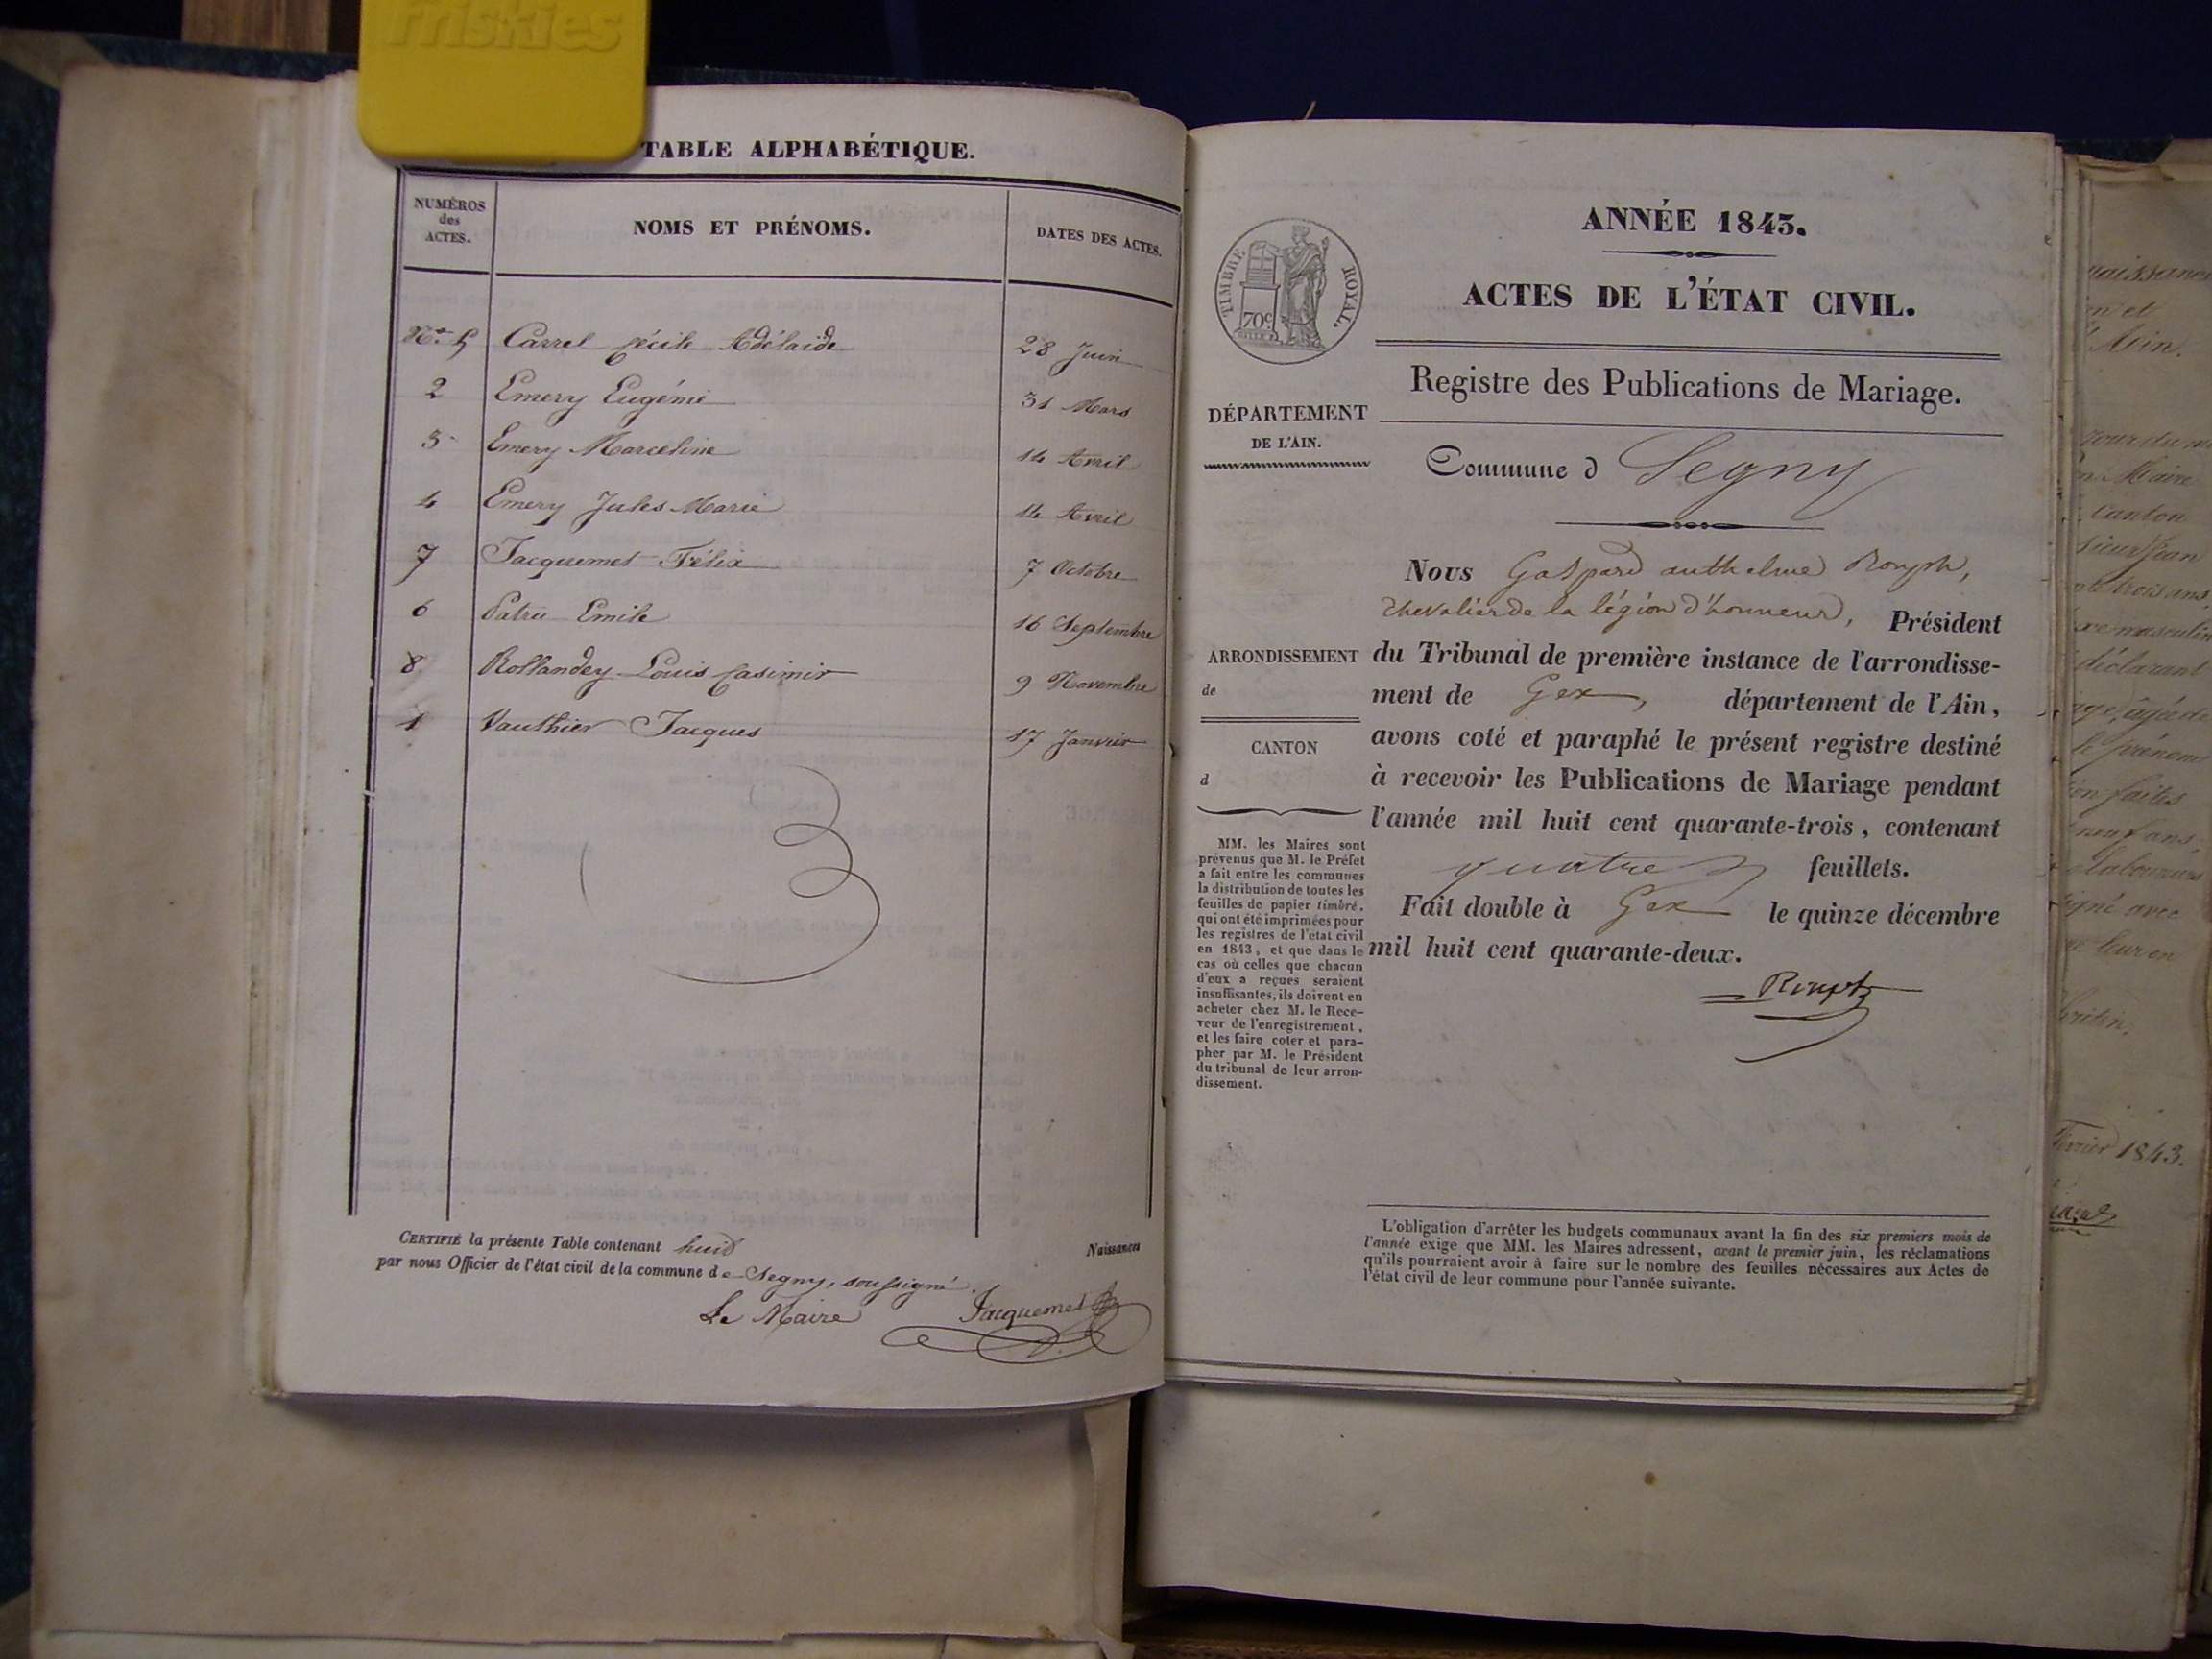 friskies
TABLE ALPHABÉTIQUE.
NUMÉROS
des
ACTES.
NOMS ET PRÉNOMS.
DATES DES ACTES.
N.o 5 Carrel Cécile Adélaide 28 Juin
2 Emery Eugénie 31 Mars
3 Emery Marceline 14 Avril
4 Emery Jules Marie 14 Avril
7 Jacquemet Félix 7 Octobre
6 Patru Emile 16 Septembre
8 Rollandey Louis Casimir 9 Novembre
1 Vauthier Jacques 17 Janvier
CERTIFIÉ la présente Table contenant huit Naissances
par nous Officier de l'état civil de la commune de Segny, soussigné.
Le Maire Jacquemet
ANNÉE 1843.
TIMBRE ROYAL.
70c
ACTES DE L'ÉTAT CIVIL.
Registre des Publications de Mariage.
DÉPARTEMENT
DE L'AIN.
Commune d Segny
Nous Gaspard anthelme Rouph,
chevalier de la légion d'honneur, Président
ARRONDISSEMENT
de
du Tribunal de première instance de l'arrondisse-
ment de Gex, département de l'Ain,
CANTON
d
avons coté et paraphé le présent registre destiné
à recevoir les Publications de Mariage pendant
l'année mil huit cent quarante-trois, contenant
quatre feuillets.
Fait double à Gex le quinze décembre
mil huit cent quarante-deux.
Rouph
MM. les Maires sont
prévenus que M. le Préfet
a fait entre les communes
la distribution de toutes les
feuilles de papier timbré,
qui ont été imprimées pour
les registres de l'état civil
en 1843, et que dans le
cas où celles que chacun
d'eux a reçues seraient
insuffisantes, ils doivent en
acheter chez M. le Rece-
veur de l'enregistrement,
et les faire coter et para-
pher par M. le Président
du tribunal de leur arron-
dissement.
L'obligation d'arrêter les budgets communaux avant la fin des six premiers mois de
l'année exige que MM. les Maires adressent, avant le premier juin, les réclamations
qu'ils pourraient avoir à faire sur le nombre des feuilles nécessaires aux Actes de
l'état civil de leur commune pour l'année suivante.
et
Ain.
Maire
Canton
trois ans
masculin
déclarant
âgée de
prénoms
faites
neuf ans,
avec
leur en
1843.